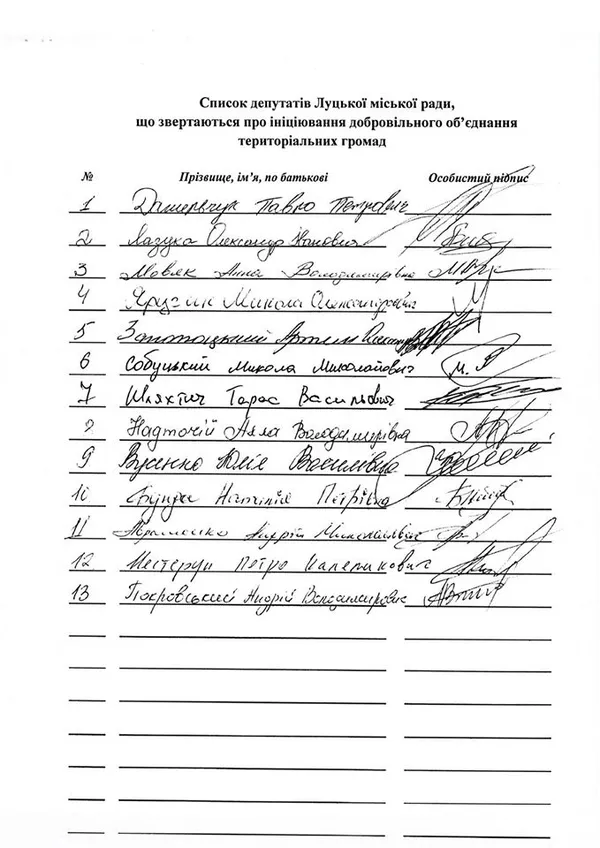 Список депутатів Луцької міської ради,
що звертаються про ініціювання добровільного об’єднання
територіальних громад
№ Прізвище, ім’я, по батькові Особистий підпис
1 Павло Петрович
2 Лазука Олександр Іванович
3 Мовяк Анна Володимирівна
4 Яручик Микола Олександрович
5 Запотоцький
6 Собуцький Микола Миколайович М.
7 Шляхтич Тарас Васильович
8 Надточій Алла Володимирівна
9 Вусенко Юлія Василівна
10 Бунда Наталія Петрівна
11 Авраменко Андрій Миколайович
12 Нестерук Петро
13 Покровський Андрій Володимирович